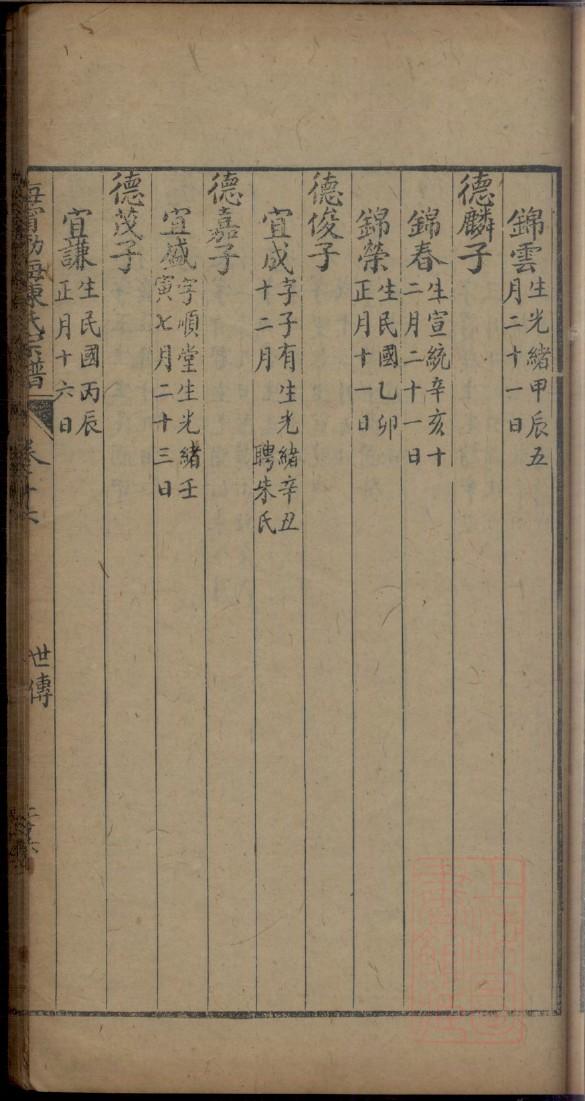 錦雲生光緒甲辰五
月二十一日
德麟子
錦春生宣統辛亥十
二月二十一日
錦榮生民國乙卯
正月十一日
德俊子
宜成字子有生光緒辛丑
十二月 聘朱氏
德嘉子
宜盛字順堂生光緒壬
寅七月二十三日
德茂子
宜謙生民國丙辰
正月十六日
海寧渤海陳氏宗譜
卷十六
世傳